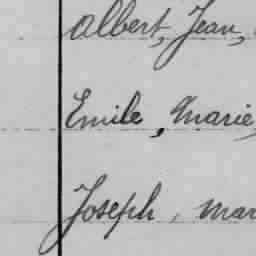 Albert, Jean,
Emile, Marie,
Joseph, mar